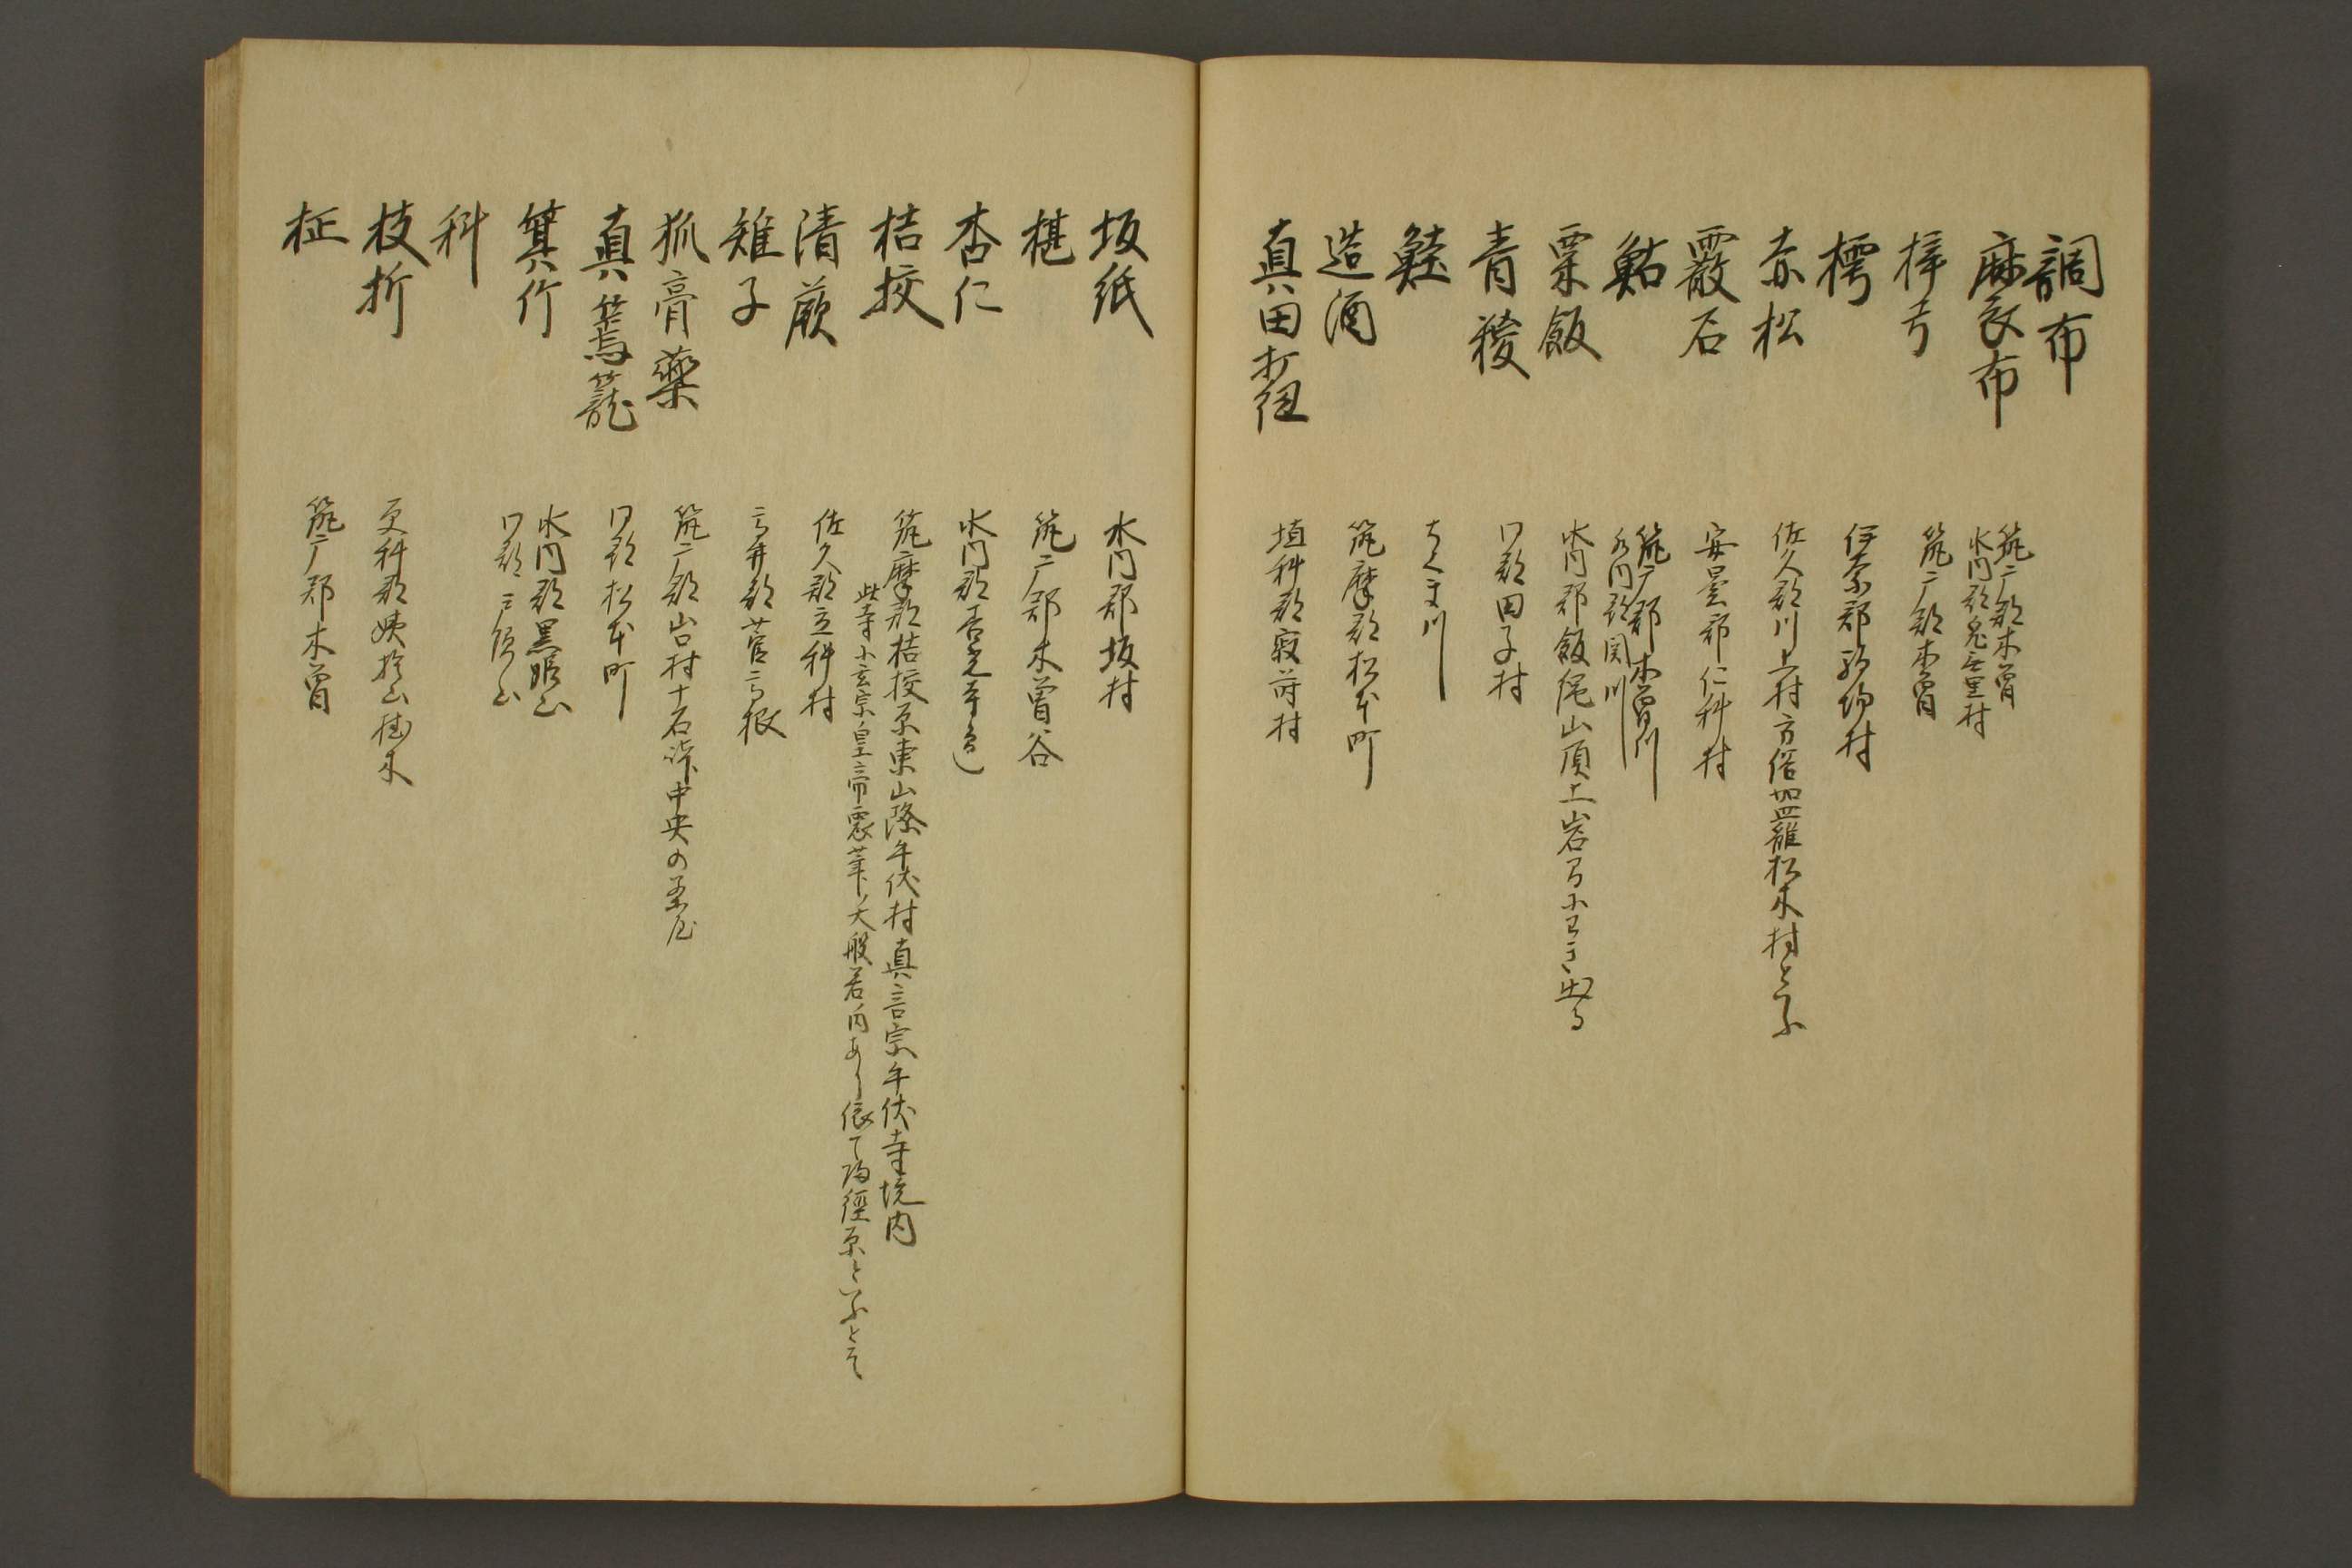 調布
麻衣布　筑广郡木曽
水内郡鬼無里村
梓弓　筑广郡木曽
樗　伊奈郡駒場村
赤松　佐久郡川上村方俗加羅松木村と云ふ
霰石　安曇郡仁科村
鮎　筑广郡木曽川
水内郡関川
粟飯　水内郡飯縄山頂上岩間
青稷　同郡田子村
鮭　ちくま川
造酒　筑摩郡松本町
真田打紐　埴科郡寂蒔村
坂紙　水内郡坂村
椹　筑广郡木曽谷
杏仁　水内郡善光寺邊
桔挍　筑摩郡桔挍原東山際牛伏村真言宗牛伏寺境内
此寺に玄宗皇帝震筆ノ大般若内あり依て帰経原といふとそ
清蕨　佐久郡立科村
雉子　高井郡菅高根
狐膏薬　筑广郡山口村十石峠中央の茶屋
真篶籠　同郡松本町
箕竹　水内郡黒姫山
同郡戸隠山
科
枝折　更科郡姨捨山桂木
柾　筑广郡木曽